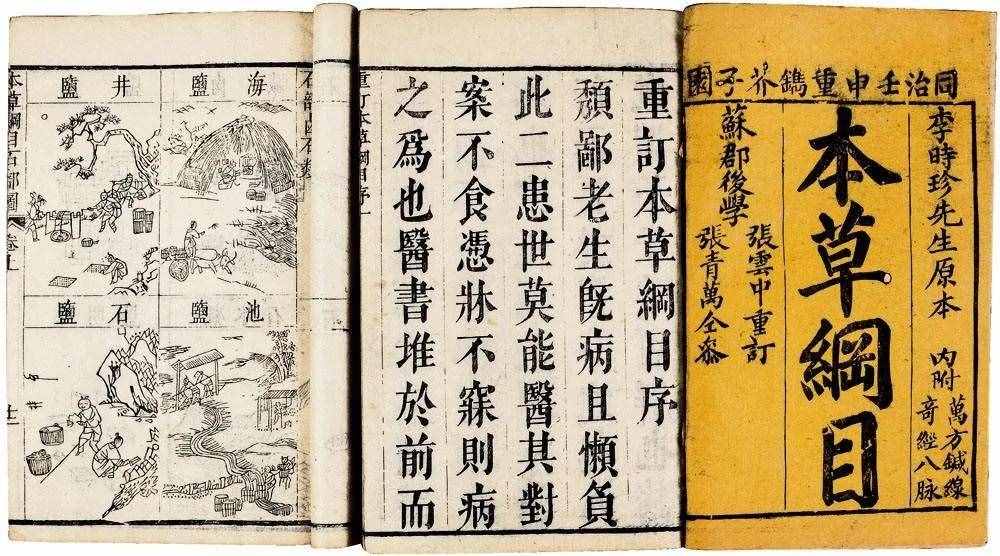 同治壬申重鐫芥子園
李時珍先生原本
內附
萬方鍼線
奇經八脉
本草綱目
張雲中重訂
蘇郡後學
張青萬仝參
重訂本草綱目序
頽鄙老生旣病且懶負
此二患世莫能醫其對
案不食憑牀不寐則病
之爲也醫書堆於前而
重訂本草綱目序
海鹽
井鹽
池鹽
石鹽
本草綱目石部圖
卷上